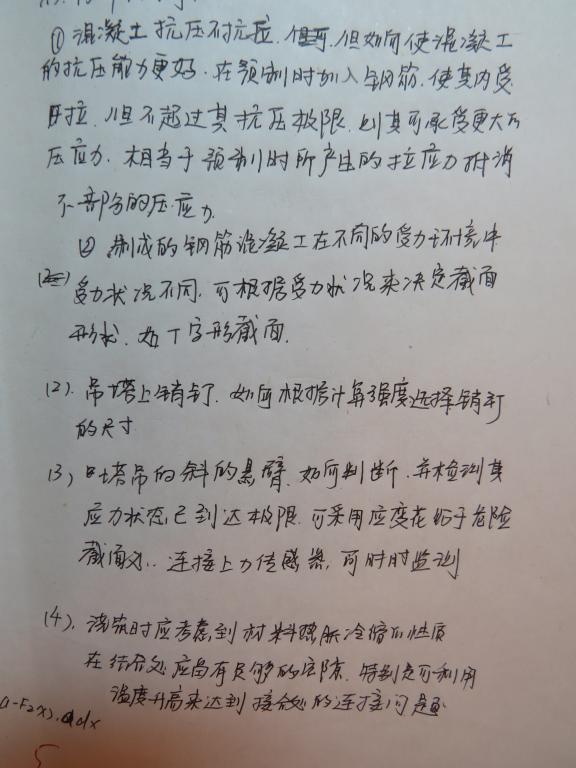 ① 混凝土抗压不抗拉，但如何使混凝土
的抗压能力更好．在预制时加入钢筋，使其内受
拉，但不超过其抗压极限，则其可承受更大的
压应力．相当于预制时所产生的拉应力抵消
部分的压应力
② 制成的钢筋混凝土在不同的受力环境中
受力状况不同，可根据受力状况来决定截面
形状．如T字形截面．
(2)．吊塔上销钉，如何根据计算强度选择销钉
的尺寸
(3) 塔吊的斜的悬臂，如何判断，并检测其
应力状态已到达极限．可采用应变花贴于危险
截面处．连接上力传感器，可时时监测
(4)．浇筑时应考虑到材料热胀冷缩的性质
在结合处应留有足够的空隙．特别是可利用
温度升高来达到接合处的连接问题
dx
5